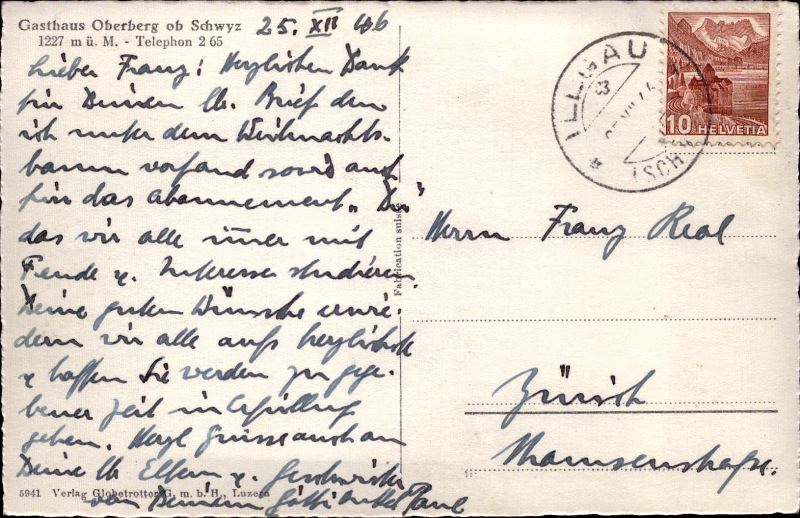 Gasthaus Oberberg ob Schwyz
1227 m ü. M. - Telephon 2 65
25. XII 46
Lieber Franz! Herzlichen Dank
für Deinen lb. Brief den
ich unter dem Weihnachts-
baum vorfand sowie auch
für das Abonnement „Du"
das wir alle immer mit
Freude & Interesse studieren.
Deine guten Wünsche erwie-
dern wir alle aufs herzlichste
& hoffen Sie werden zu gege-
bener Zeit in Erfüllung
gehen. Herzl Grüsse auch an
Deine lb Eltern & Geschwister
von Deinem Götti Paul
5941 Verlag Globetrotter G. m. b. H., Luzern
Fabrication suisse
ILLGAU
(SCH
10 HELVETIA
Herrn Franz Real
Zürich